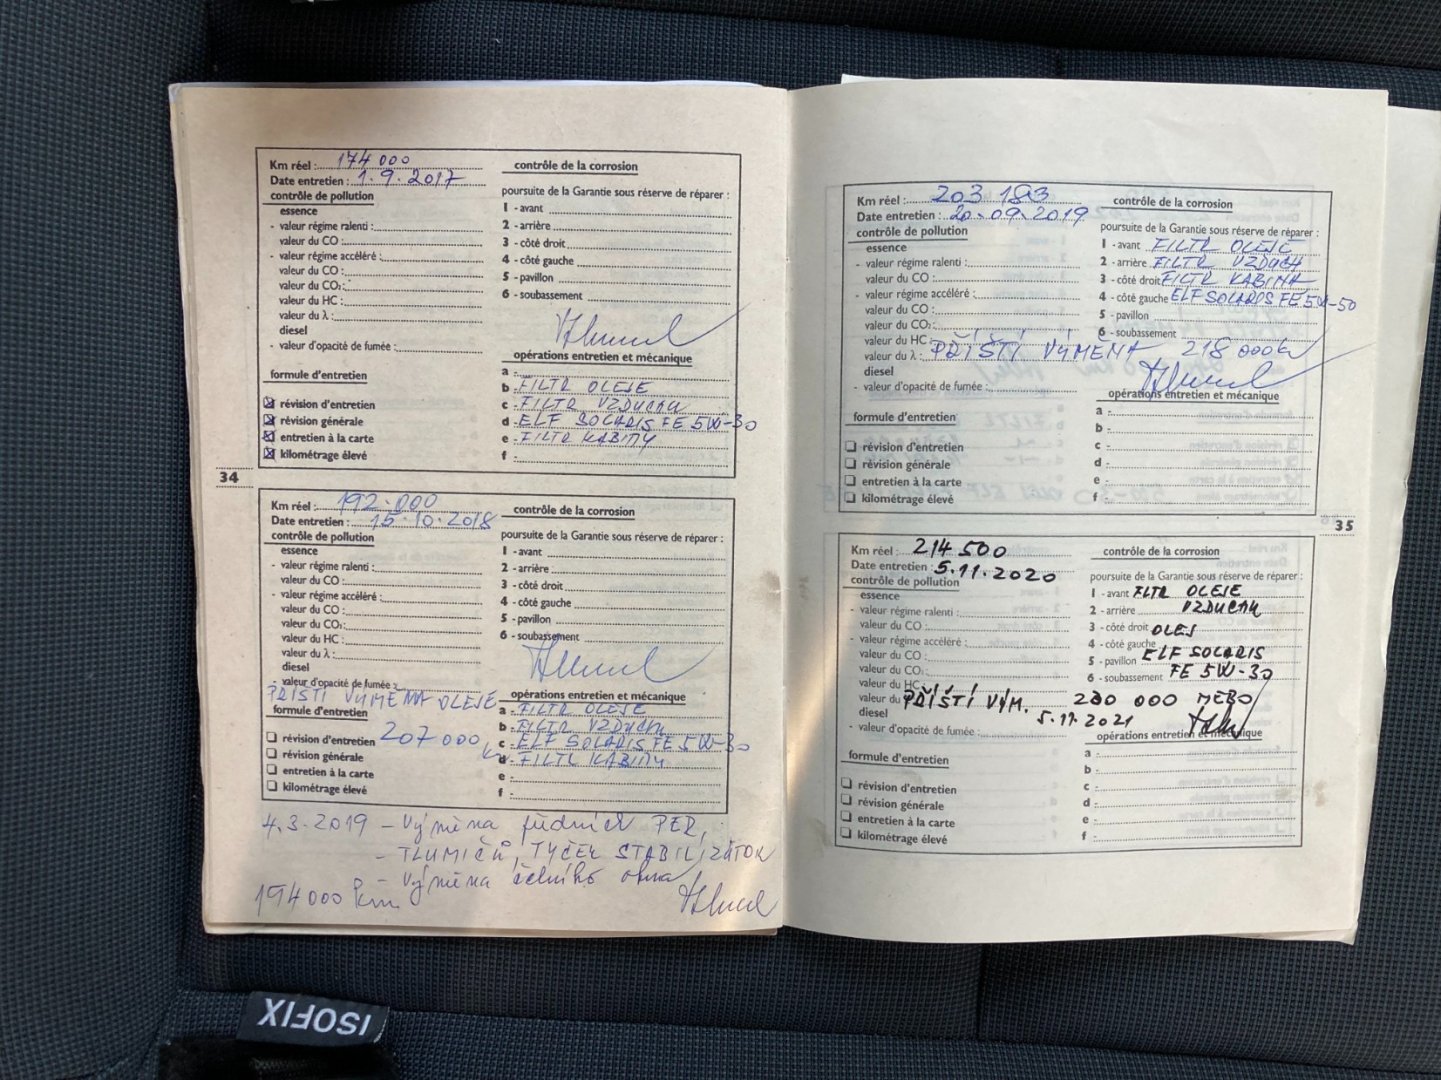 Km réel : 174 000
Date entretien : 1.9.2017
contrôle de pollution
essence
- valeur régime ralenti :
valeur du CO :
- valeur régime accéléré :
valeur du CO :
valeur du CO₂ :
valeur du HC :
valeur du λ :
diesel
- valeur d'opacité de fumée :
formule d'entretien
révision d'entretien
révision générale
entretien à la carte
kilométrage élevé
contrôle de la corrosion
poursuite de la Garantie sous réserve de réparer :
1 - avant
2 - arrière
3 - côté droit
4 - côté gauche
5 - pavillon
6 - soubassement
opérations entretien et mécanique
a -
b - FILTR OLEJE
c - FILTR VZDUCHU
d - ELF SOLARIS FE 5W-30
e - FILTR KABINY
f -
34
Km réel : 192.000
Date entretien : 15.10.2018
contrôle de pollution
essence
- valeur régime ralenti :
valeur du CO :
- valeur régime accéléré :
valeur du CO :
valeur du CO₂ :
valeur du HC :
valeur du λ :
diesel
- valeur d'opacité de fumée :
PŘÍŠTÍ VÝMĚNA OLEJE
formule d'entretien
207 000 km
révision d'entretien
révision générale
entretien à la carte
kilométrage élevé
contrôle de la corrosion
poursuite de la Garantie sous réserve de réparer :
1 - avant
2 - arrière
3 - côté droit
4 - côté gauche
5 - pavillon
6 - soubassement
opérations entretien et mécanique
a - FILTR OLEJE
b - FILTR VZDUCHU
c - ELF SOLARIS FE 5W-30
d - FILTR KABINY
e -
f -
4.3.2019 - Výměna předních PER,
- TLUMIČŮ, TYČEK STABILIZÁTOR
- Výměna čelního okna
194000 km
Km réel : 203 193
Date entretien : 20.09.2019
contrôle de pollution
essence
- valeur régime ralenti :
valeur du CO :
- valeur régime accéléré :
valeur du CO :
valeur du CO₂ :
valeur du HC :
valeur du λ : PŘÍŠTÍ VÝMĚNA 218 000 km
diesel
- valeur d'opacité de fumée :
formule d'entretien
révision d'entretien
révision générale
entretien à la carte
kilométrage élevé
contrôle de la corrosion
poursuite de la Garantie sous réserve de réparer :
1 - avant FILTR OLEJE
2 - arrière FILTR VZDUCH
3 - côté droit FILTR KABINA
4 - côté gauche ELF SOLARIS FE 5W-50
5 - pavillon
6 - soubassement
opérations entretien et mécanique
a -
b -
c -
d -
e -
f -
35
Km réel : 214 500
Date entretien : 5.11.2020
contrôle de pollution
essence
- valeur régime ralenti :
valeur du CO :
- valeur régime accéléré :
valeur du CO :
valeur du CO₂ :
valeur du HC :
valeur du PŘÍŠTÍ VÝM. 230 000 NEBO
diesel 5.11.2021
- valeur d'opacité de fumée :
formule d'entretien
révision d'entretien
révision générale
entretien à la carte
kilométrage élevé
contrôle de la corrosion
poursuite de la Garantie sous réserve de réparer :
1 - avant FLTR OLEJE
2 - arrière VZDUCHU
3 - côté droit OLEJ
4 - côté gauche
5 - pavillon ELF SOLARIS
6 - soubassement FE 5W-30
opérations entretien et mécanique
a -
b -
c -
d -
e -
f -
ISOFIX